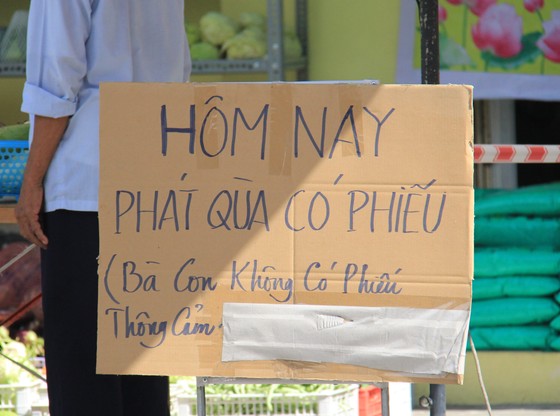 HÔM NAY
PHÁT QÙA CÓ PHIẾU
(Bà Con Không Có Phiếu
Thông Cảm